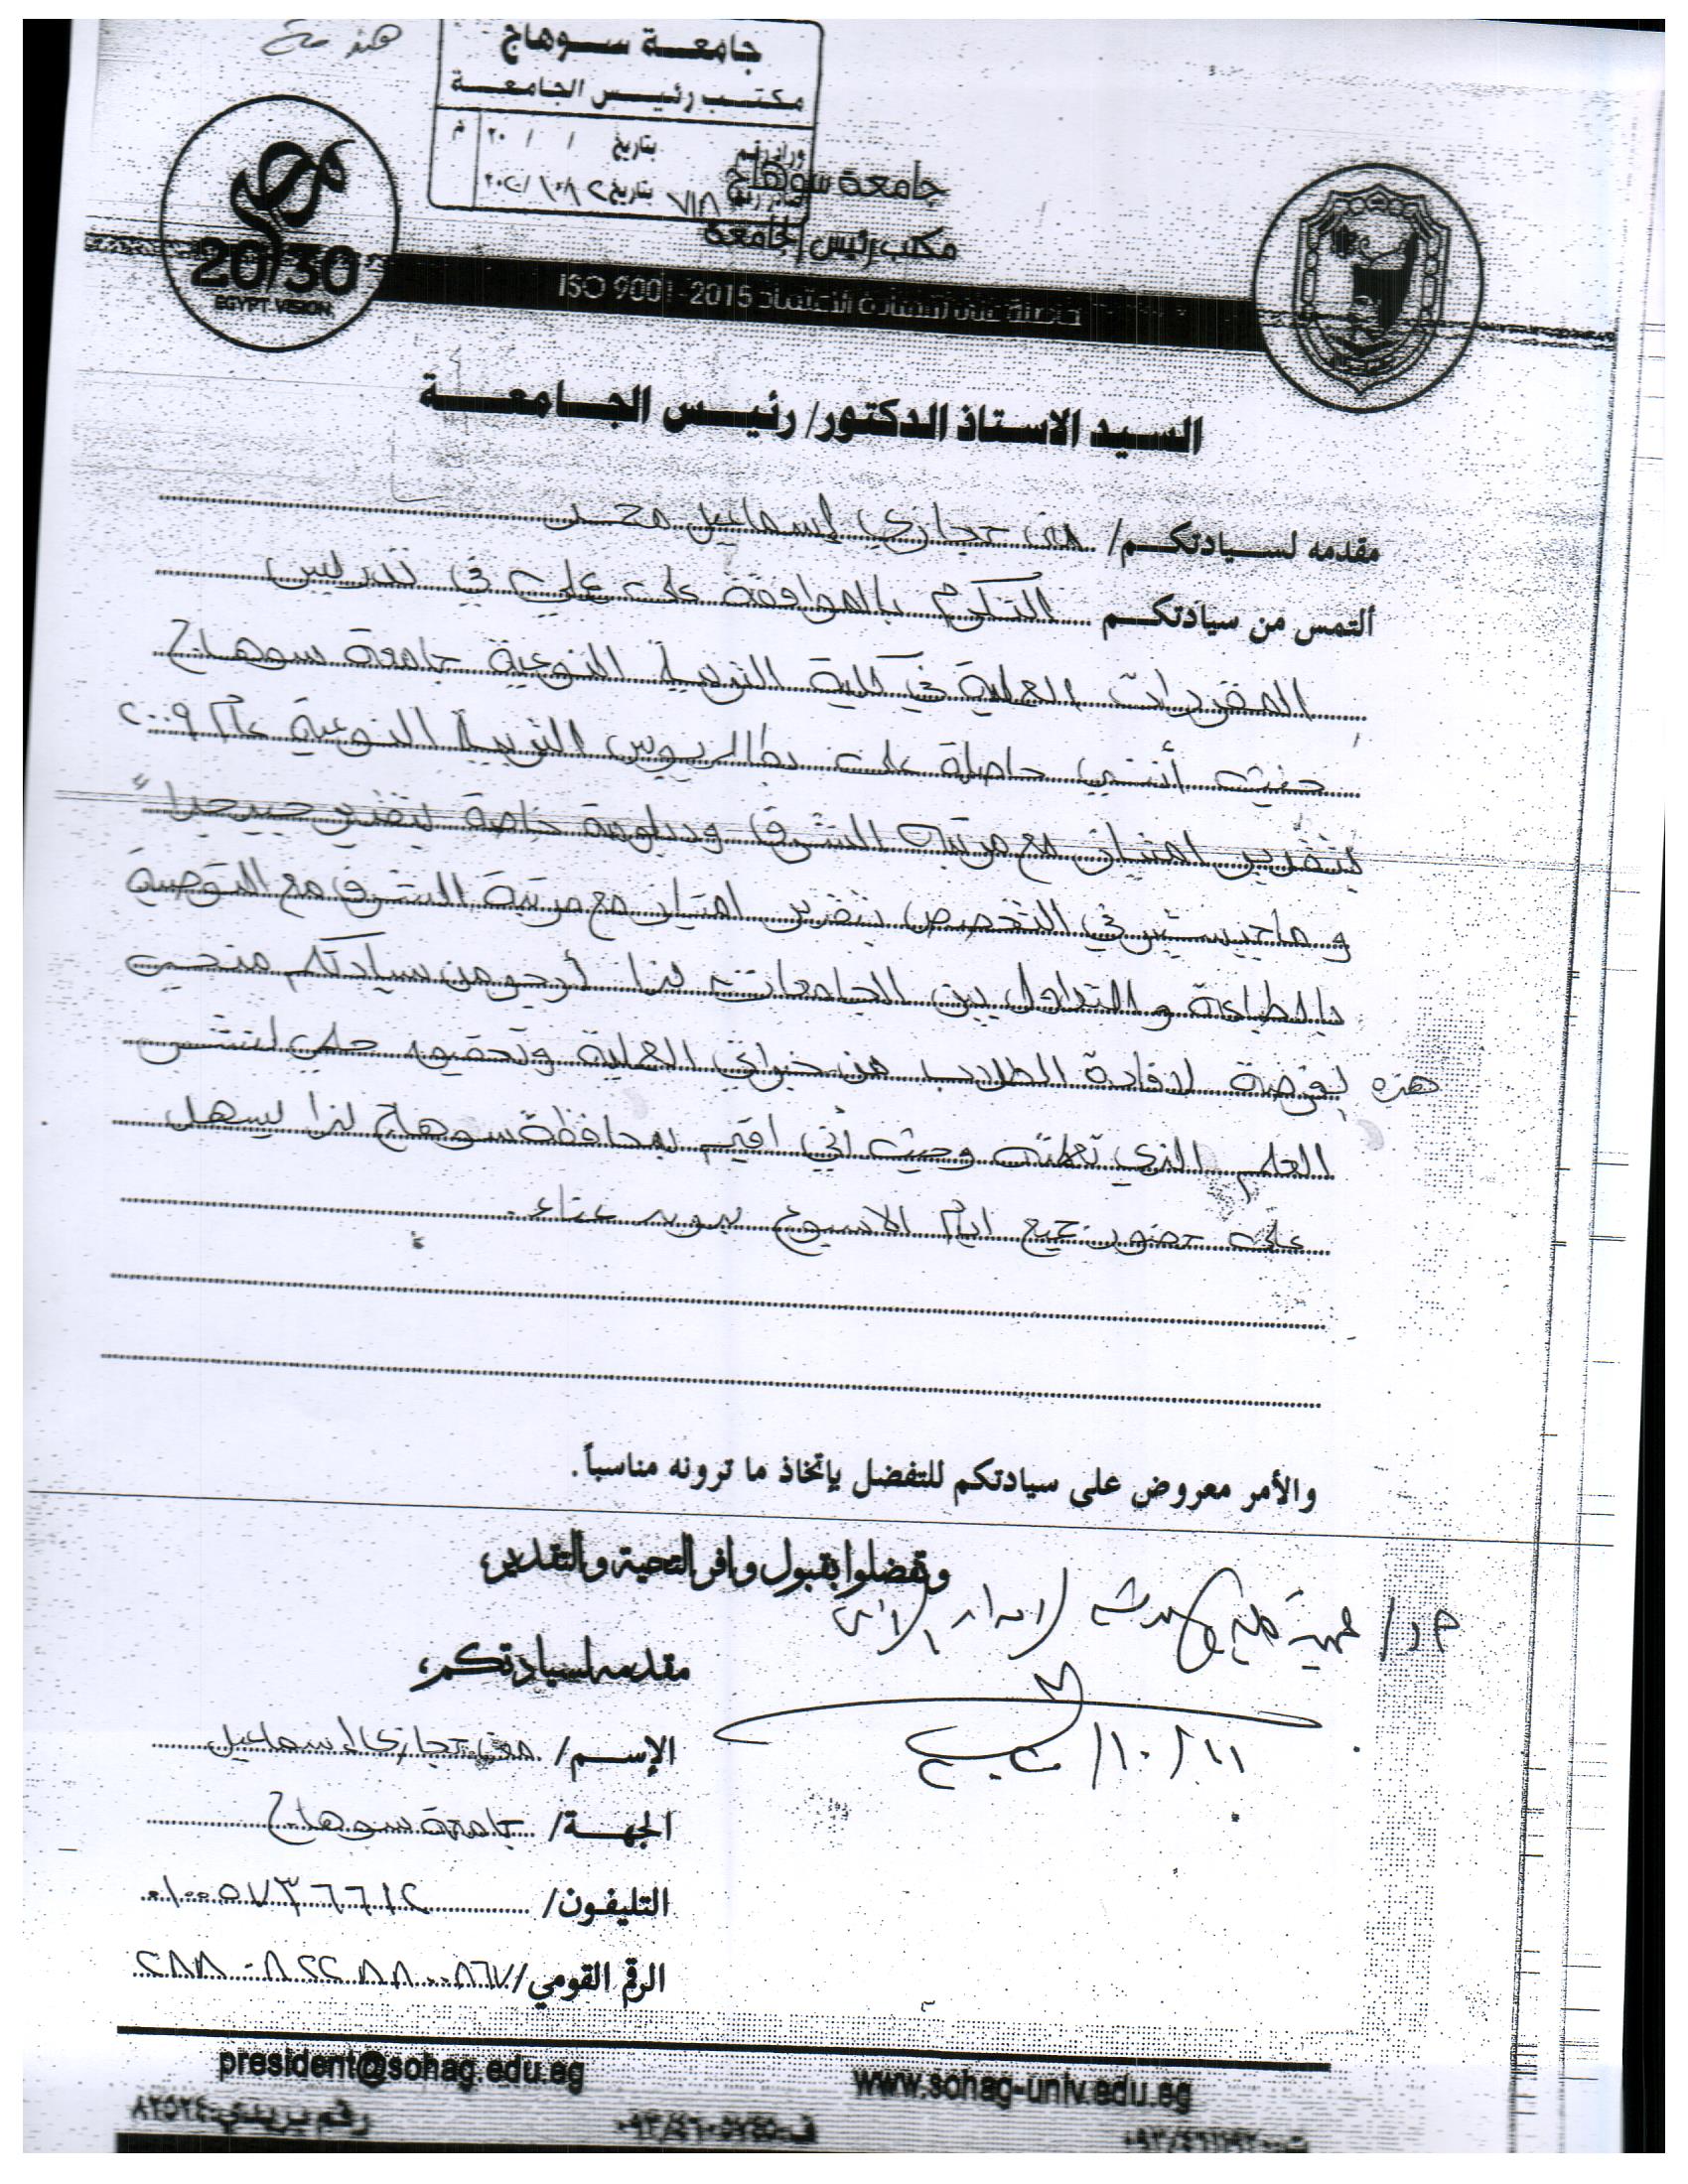 هندسة
جامعة سوهاج
مكتب رئيس الجامعة
وارد رقم بتاريخ / / ٢٠ م
صادر رقم ٧١٨ بتاريخ
جامعة سوهاج
مكتب رئيس الجامعة
20/30
EGYPT VISION
ISO 9001-2015
السيد الاستاذ الدكتور/ رئيس الجامعة
مقدمه لسيادتكم/ منى حجازي إسماعيل محمد
ألتمس من سيادتكم التكرم بالموافقة على عملي في تدريس
المقررات العملية في كلية التربية النوعية جامعة سوهاج
حيث أنني حاصلة على بكالريوس التربية النوعية عام ٢٠٠٩
بتقدير امتياز مع مرتبة الشرف ودبلومة خاصة بتقدير جيد جداً
و ماجيستير في التخصص بتقدير امتياز مع مرتبة الشرف مع التوصية
بالطباعة والتداول بين الجامعات لذا أرجو من سيادتكم منحي
هذه الفرصة لافادة الطلاب من خبراتي العملية وتحقيق حلمي لنشر
العلم الذي تعلمته وحيث أني اقيم بمحافظة سوهاج لذا يسهل
على حضور جميع ايام الاسبوع بدون عناء.
والأمر معروض على سيادتكم للتفضل بإتخاذ ما ترونه مناسباً.
وتفضلوا بقبول وافر التحية والتقدير،
مقدمه لسيادتكم،
الإسم/ منى حجازي إسماعيل
الجهة/ جامعة سوهاج
التليفون/ ٠١٠٠٥٧٣٦٦١٢
الرقم القومي/ ٢٨٨٠٨٢٢٨٨٠٠٨٦٧
president@sohag.edu.eg www.sohag-univ.edu.eg
رقم بريدي ٨٢٥٢٤